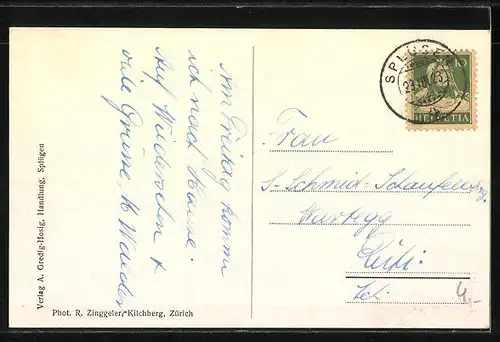 Am Freitag komme
ich nach Hause.
Auf Wiedersehen &
viele Grüsse,
SPLÜGEN
10
HELVETIA
Frau
S. Schmid-Schaufelberg.
Wartegg
Rüti.
Zch.
4,-
Verlag A. Gredig-Hosig, Handlung, Splügen
Phot. R. Zinggeler, Kilchberg, Zürich